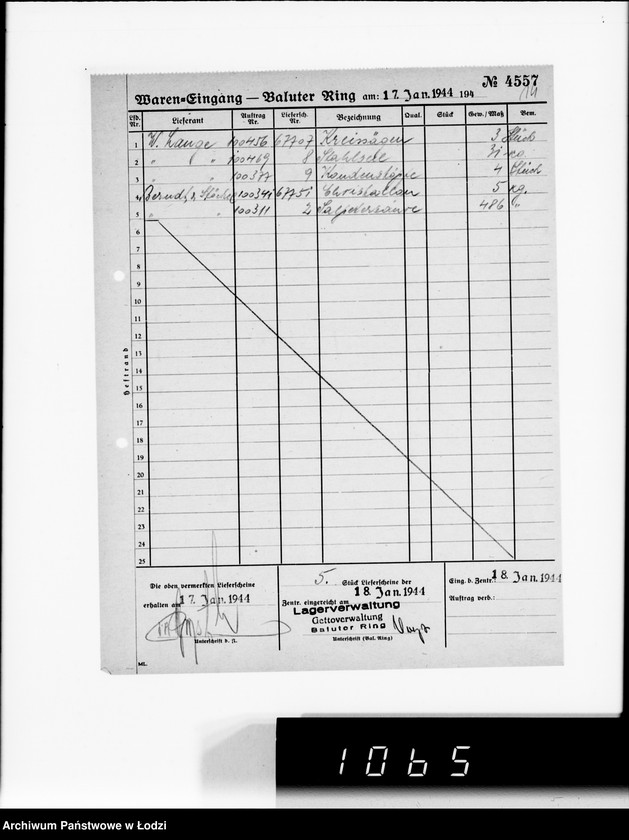 № 4557
14
Waren=Eingang — Baluter Ring am: 17. Jan. 1944 194
Lfd. Nr. Lieferant Auftrag Nr. Liefersch. Nr. Bezeichnung Qual. Stück Gew./Maß Bem.
1 W. Lange 100456 67707 Kreissägen 3 Stück
2 " " 100469 8 31 kg.
3 " " 100377 9 4 Stück
4 Berndt, 67751 5 kg.
5 " 100311 2 486 "
6
7
8
9
10
11
12
13
14
15
16
17
18
19
20
21
22
23
24
25
Heftrand
Die oben vermerkten Lieferscheine
erhalten am 17. Jan. 1944
Unterschrift d. A.
5. Stück Lieferscheine der
Zentr. eingereicht am 18. Jan. 1944
Lagerverwaltung
Gettoverwaltung
Baluter Ring
Unterschrift (Bal. Ring)
Eing. b. Zentr. 18. Jan. 1944
Auftrag verb.:
ML.
1065
Archiwum Państwowe w Łodzi